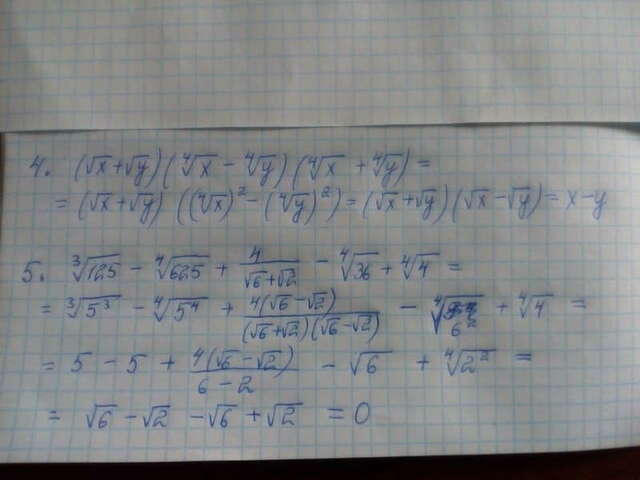 4. (√x+√y)(⁴√x - ⁴√y)(⁴√x + ⁴√y) =
= (√x+√y) ((⁴√x)² - (⁴√y)²) = (√x+√y)(√x-√y) = x-y
5. ³√125 - ⁴√625 + 4/(√6+√2) - ⁴√36 + ⁴√4 =
= ³√5³ - ⁴√5⁴ + 4(√6-√2)/((√6+√2)(√6-√2)) - ⁴√6² + ⁴√4 =
= 5 - 5 + 4(√6-√2)/(6-2) - √6 + ⁴√2² =
= √6 - √2 - √6 + √2 = 0